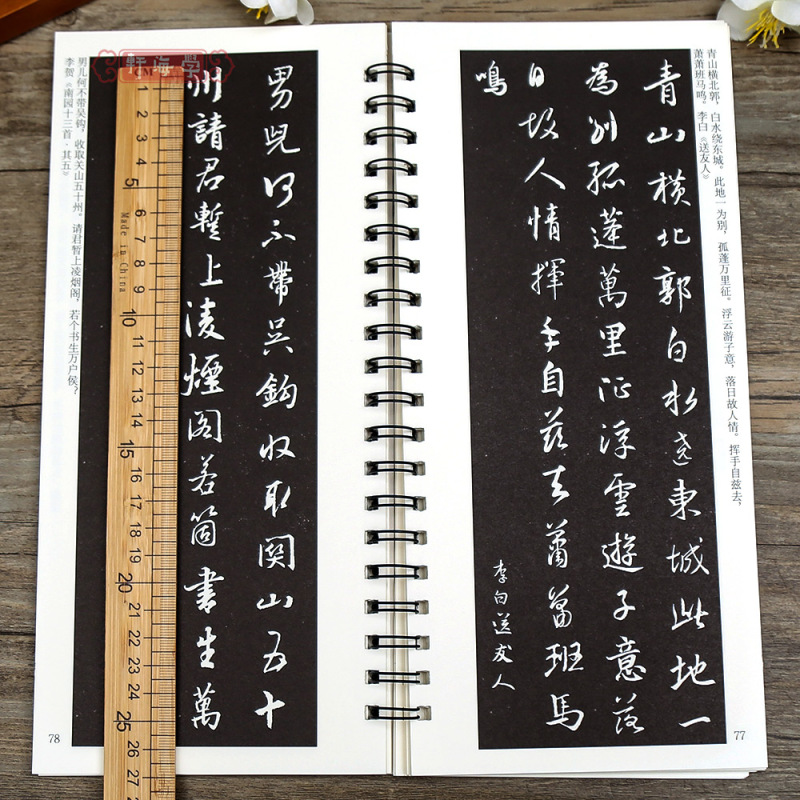 青山横北郭，白水绕东城。此地一为别，孤蓬万里征。浮云游子意，落日故人情。挥手自兹去，
萧萧班马鸣。李白《送友人》
青山橫北郭白水遶東城此地一
為別孤蓬萬里征浮雲遊子意落
日故人情揮手自茲去蕭蕭班馬
鳴
李白送友人
77
男兒何不帶吳鈎收取關山五十
州請君暫上凌煙閣若箇書生萬
男儿何不带吴钩，收取关山五十州。请君暂上凌烟阁，若个书生万户侯？
李贺《南园十三首·其五》
78
軒海學
1 2 3 4 5 6 7 8 9 10 11 12 13 14 15 16 17 18 19 20 21 22 23 24 25 26 27
Made in China